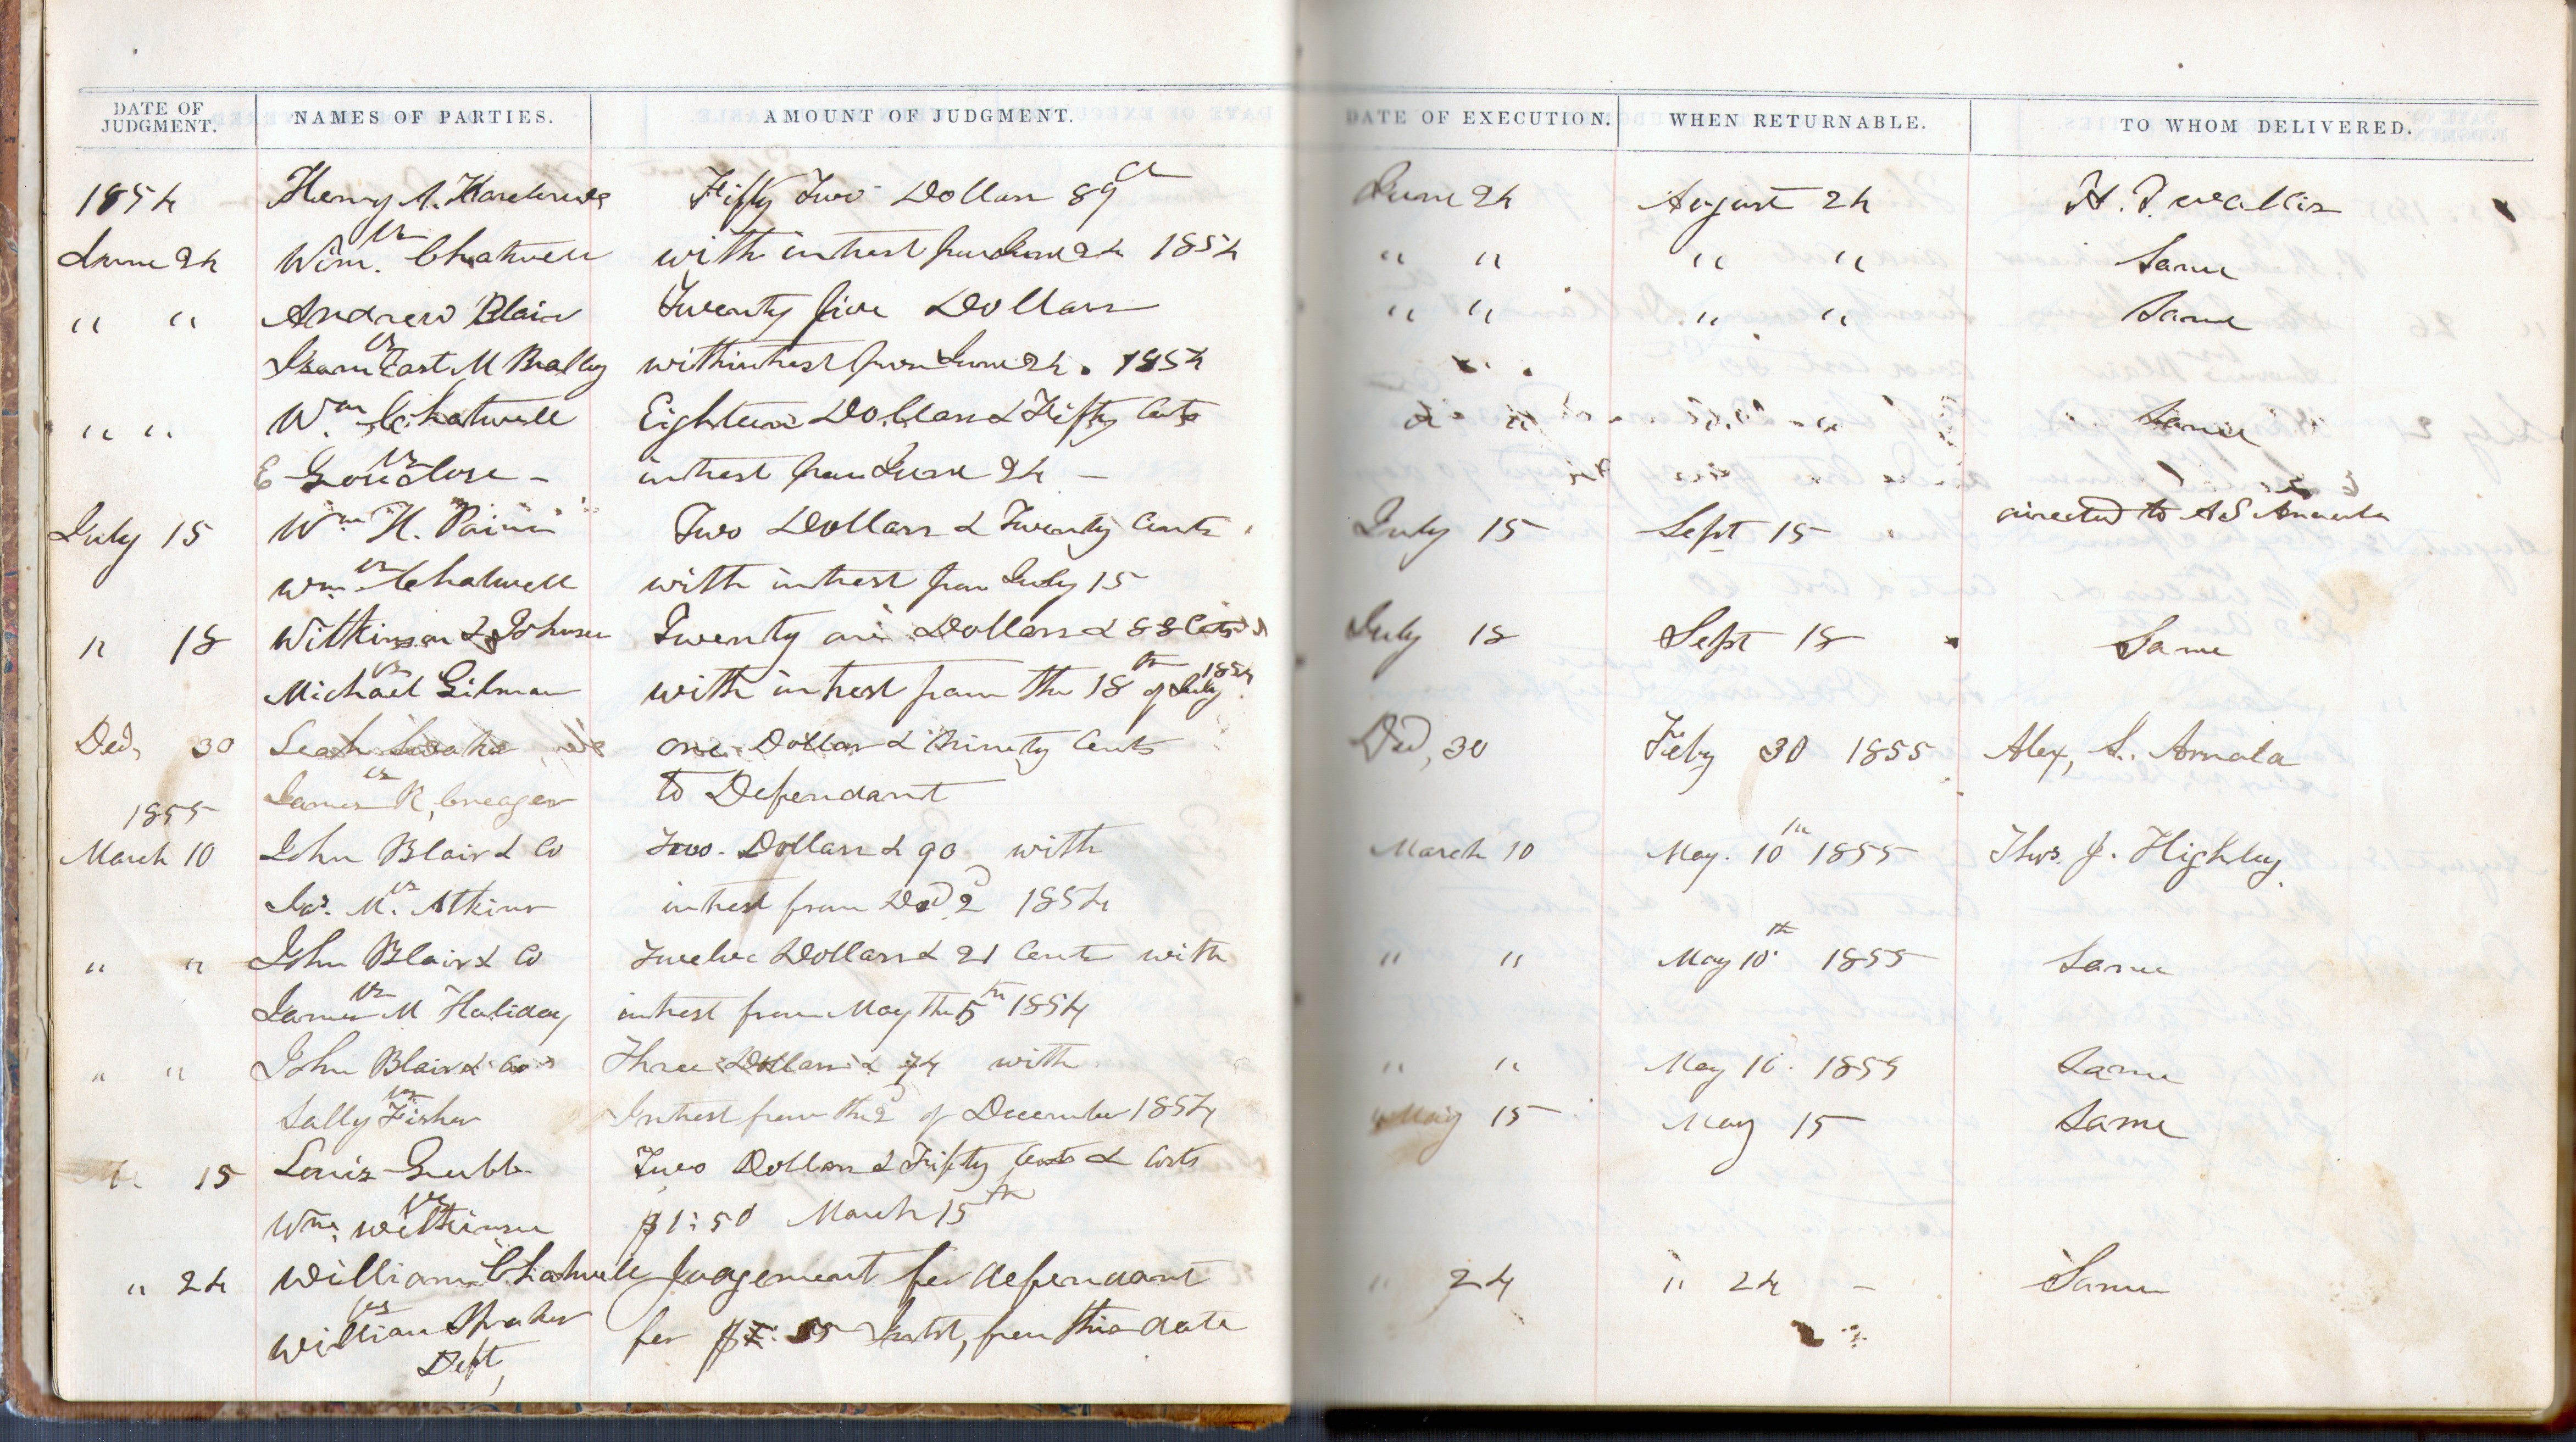 DATE OF JUDGMENT. NAMES OF PARTIES. AMOUNT OF JUDGMENT. DATE OF EXECUTION. WHEN RETURNABLE. TO WHOM DELIVERED.
1854 Henry A. Fifty Two Dollars 89 ct June 24 August 24 H. T. Wallis
June 24 vs Wm. Chatwell with intrest from June 24 1854 " " " " Same
" " Andrew Blair Twenty five Dollars " " " " Same
vs Isam East M Bralley with intrest from June 24. 1854
" " Wm Chatwell Eighteen Dollars & Fifty Cents " " " " Same
vs E Goodlow - intrest from June 24 -
July 15 Wm H. Two Dollars & Twenty Cents July 15 Sept 15 directed to A S
vs Wm. Chatwell with intrest from July 15
" 18 Wilkinson & Johnson Twenty one Dollars & 88 Cents July 18 Sept 18 Same
vs Michael Gilman with intrest from the 18th of July 1854
Dec, 30 Leah one Dollar & Ninety Cents Dec, 30 Feby 30 1855 Alex, S. Arnold
vs James R, Creager to Defendant
1855
March 10 John Blair & Co Two Dollars & 90 with March 10 May. 10th 1855 Thos. J. Highley
vs Jas. M. Atkins intrest from Dec 2d 1854
" " John Blair & Co Twelve Dollars & 21 Cents with " " May 10th 1855 Same
vs James M Haliday intrest from May the 5th 1854
" " John Blair & Co Three Dollars & 74 with " " May 10. 1855 Same
vs Sally Fisher Intrest from the 2d of December 1854
15 Louis Grubb Two Dollars & Fifty Cents & Costs May 15 May 15 Same
vs Wm. Wilkinson $1:50 March 15th
" 24 William Chatwell Judgement for defendant " 24 " 24 - Same
vs William for 55 Intrst, from this date
Deft,